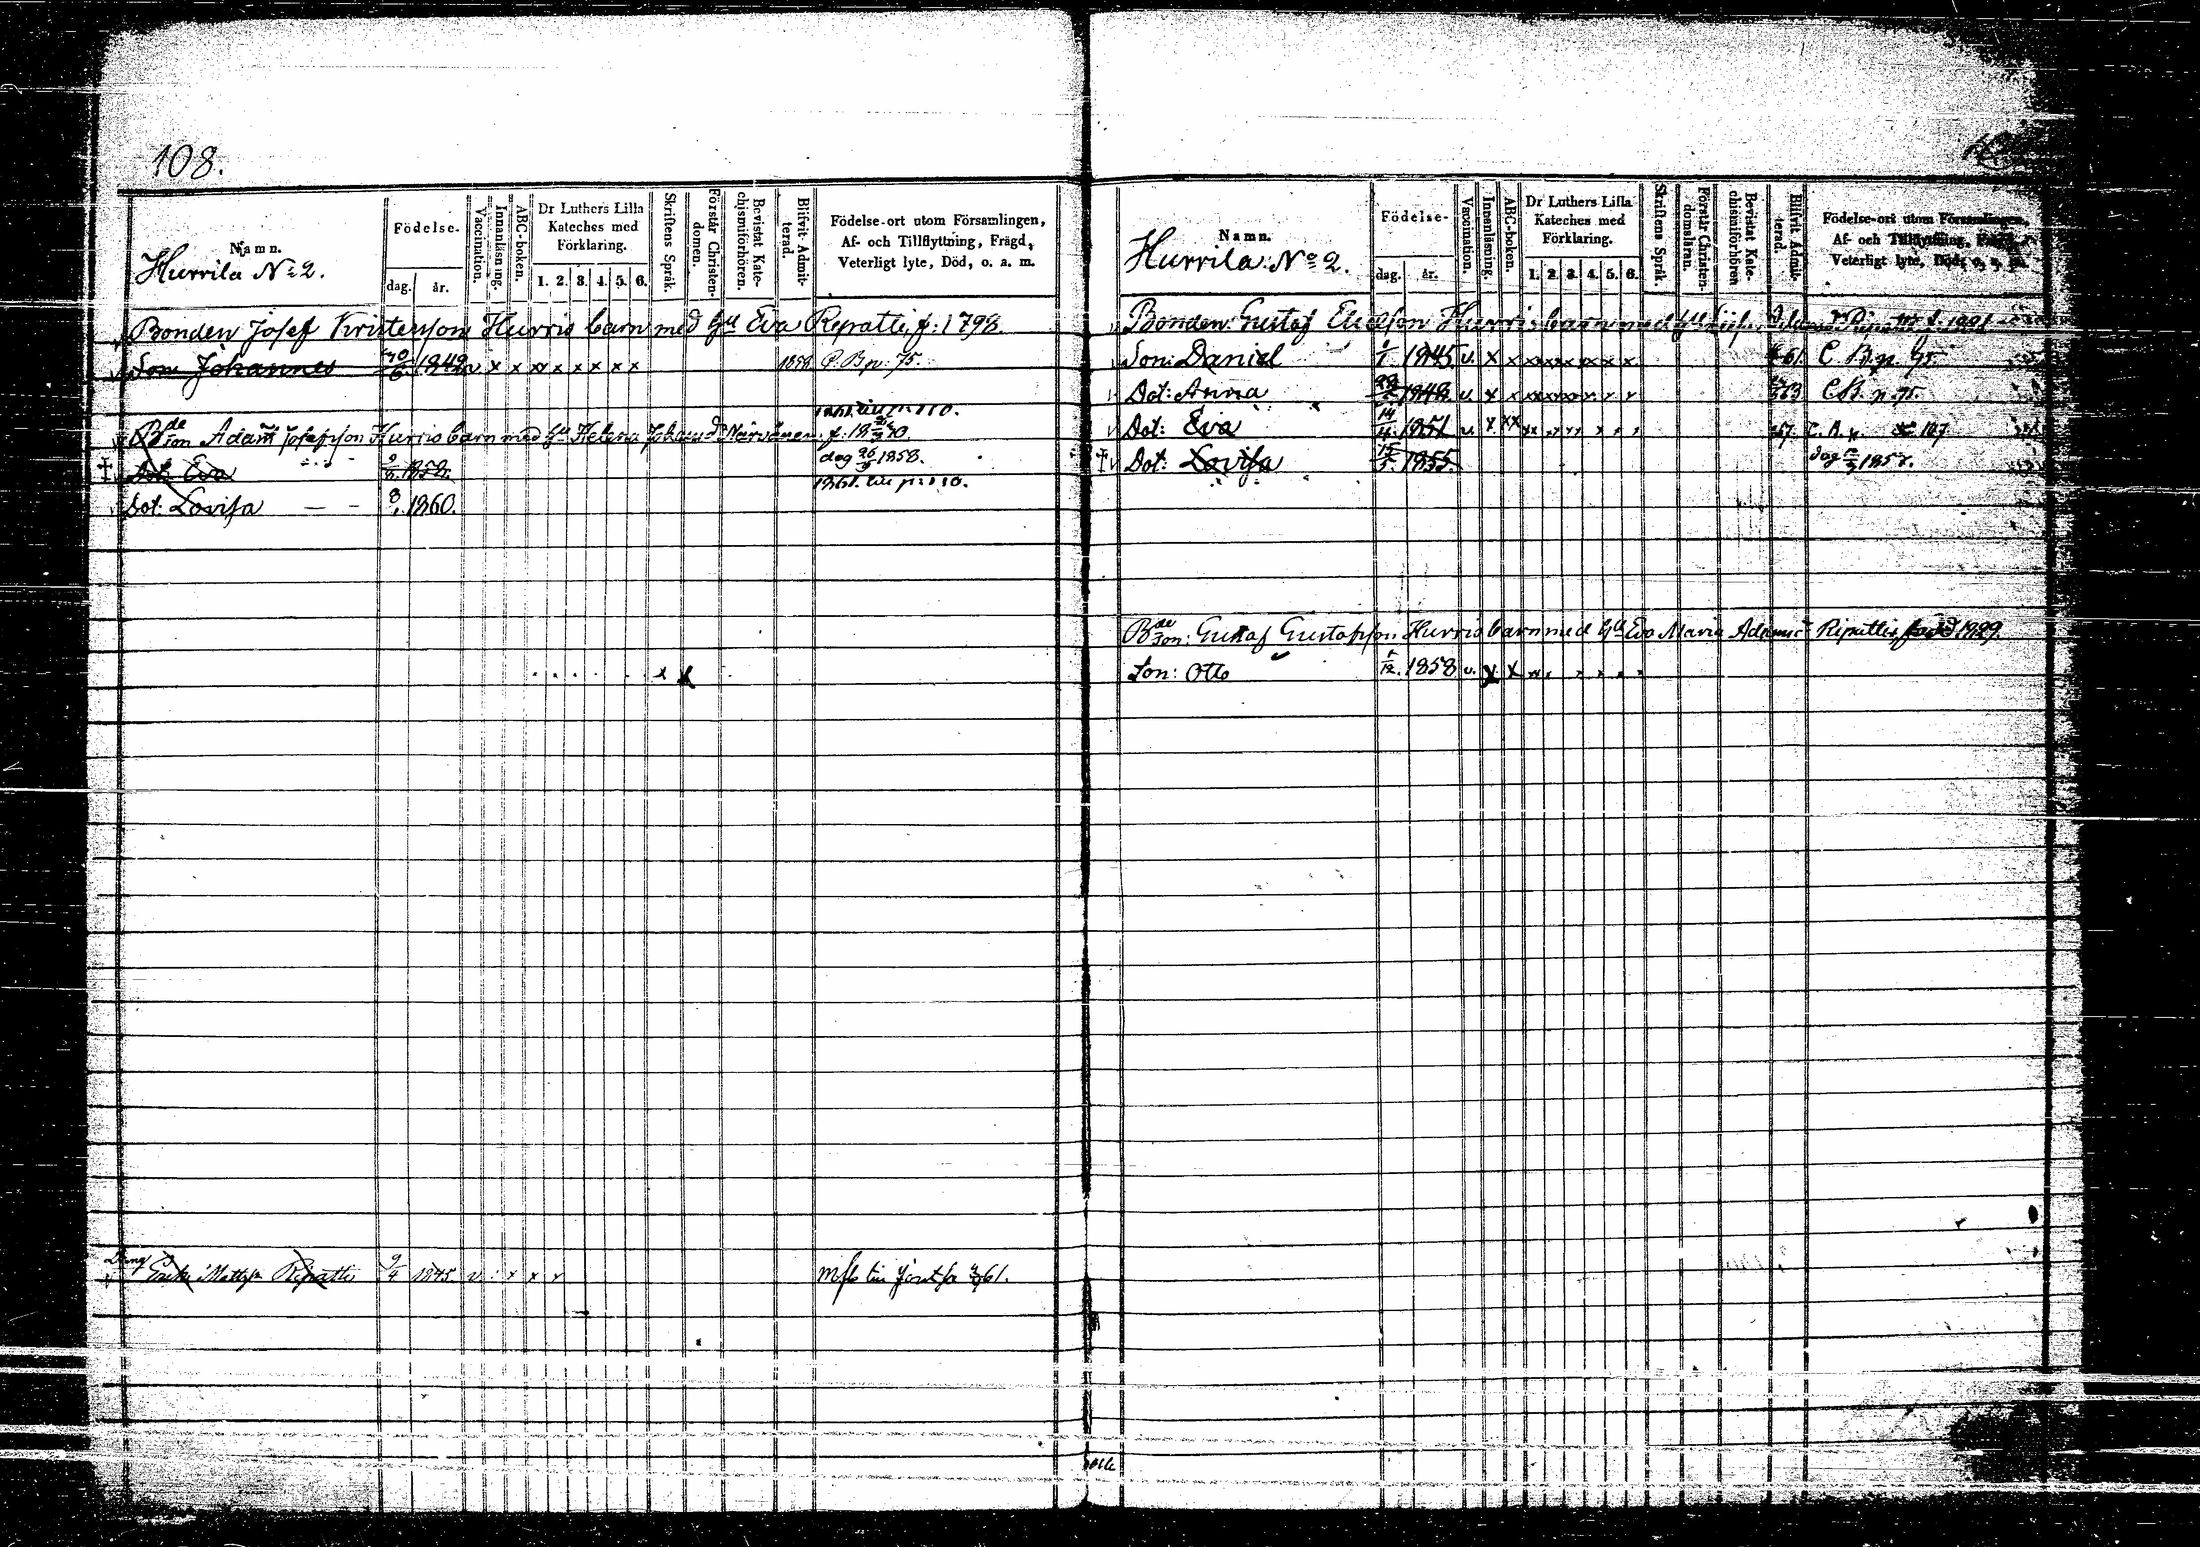 108.
Namn.
Hurrila No 2.
Födelse-
dag. år.
Vaccination.
Innanläsning.
ABC-boken.
Dr Luthers Lilla Kateches med Förklaring.
1. 2. 3. 4. 5. 6.
Skriftens Språk.
Förstår Christendomen.
Bevistat Katechismiförhören.
Blifvit Admitterad.
Födelse-ort utom Församlingen,
Af- och Tillflyttning, Frägd,
Veterligt lyte, Död, o. a. m.
Bonden Josef Kristersson Hurris barn med Hu Eva Repatti f: 1798
Son Johannes 1842 x x x x x x x x 1859 C. B. p. 75.
1861 till p: 110.
Bde son Adam Josefsson Hurris barn med Hu Helena Johans dr Närvänen f: 18
Dot: Eva 1858. dog 26/9 1858.
1861. till p: 110.
Dot: Lovisa — - 1860.
x x
Dräng Erik Mattss Ripatti 9/4 1845 v x x x 61.
Namn.
Hurrila No 2.
Födelse-
dag. år.
Vaccination.
Innanläsning.
ABC-boken.
Dr Luthers Lilla Kateches med Förklaring.
1. 2. 3. 4. 5. 6.
Skriftens Språk.
Förstår Christendomsläran.
Bevistat Katechismiförhören
Blifvit Admitterad.
Födelse-ort utom Församlingen,
Af- och Tillflyttning, Frägd,
Veterligt lyte, Död, o. a. m.
Bonden: Gustaf Hurris barn med Hu
Son: Daniel 1845. v. x x x x x x x x 61. C. B. p. 95.
Dot: Anna 1848. v. x x x x x x x x 63 C.B. p. 75.
Dot: Eva 14/4 1851 v. x x x x x x x x 67. C. B. p. 107
Dot: Lovisa 15/5 1855 dog 1857.
Bde son: Gustaf Gustafsson Hurris barn med Hu Eva Maria Adams dr Ripatti född 1829.
Son: Otto 1/12. 1858 v. x x x x x x x